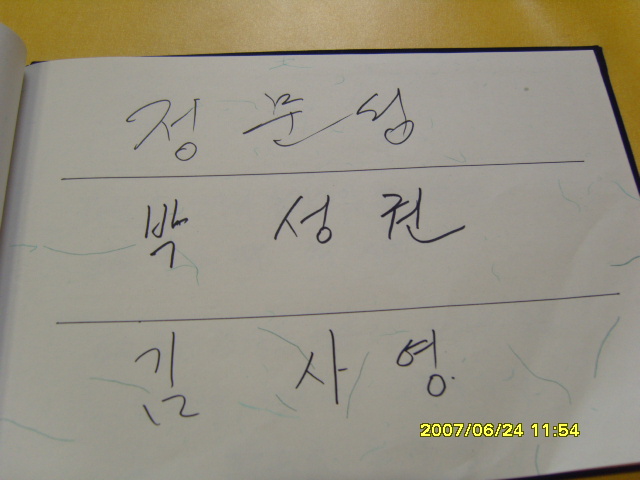 정문섭
박성권
김사영
2007/06/24 11:54